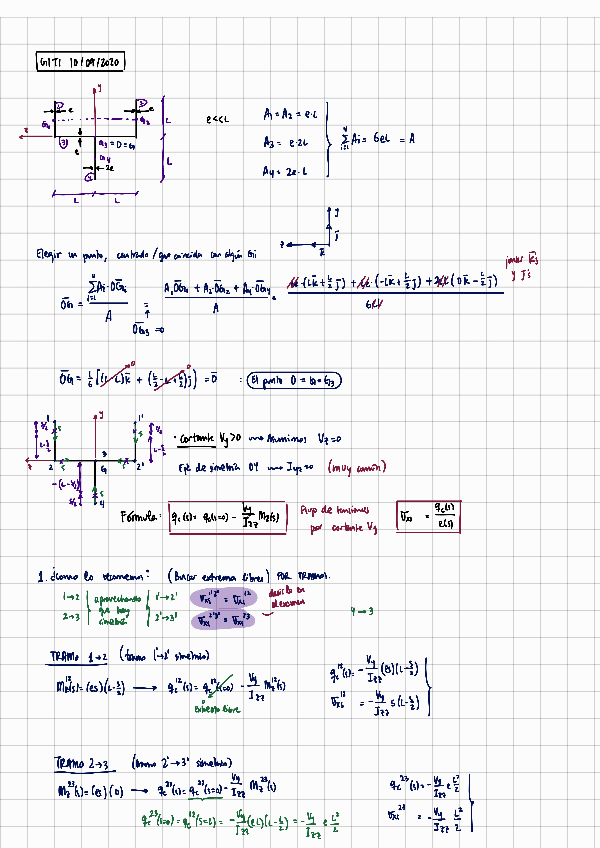 GITI 10/09/2020
e<<L
A₁ = A₂ = e·L
A₃ = e·2L
A₄ = 2e·L
Σ Ai = 6eL = A
Elegir un punto, centrado / que coincida con algún Gi
juntar k̄s y j̄s
OG = Σ Ai·OGi / A = (A₁OG₁ + A₂OG₂ + A₄·OG₄) / A = (eL·(Lk̄ + L/2 j̄) + eL·(-Lk̄ + L/2 j̄) + 2eL(0k̄ - L/2 j̄)) / 6eL
OG₃ = 0
OG = 1/6 [(L-L)k̄ + (L/2 - L + L/2)j̄] = 0̄ : El punto O = G = G₃
· Cortante Vy>0 → Asumimos Vz=0
Eje de simetría OY → Iyz=0 (muy común)
Fórmula: qc(s) = qc(s=0) - Vy/Izz Mz(s)
Flujo de tensiones por cortante Vy
τxs = qc(s)/e(s)
1. ¿Cómo lo recorremos? (Buscar extremos libres) POR TRAMOS.
1→2
2→3
aprovechando que hay simetría
1'→2'
2'→3'
τxs^1'2' = τxs^12
τxs^2'3' = τxs^23
decirlo en el examen
4→3
TRAMO 1→2 (tramo 1'→2' simétrico)
Mz^12(s) = (es)(L-s/2) → qc^12(s) = qc^12(s=0) - Vy/Izz Mz^12(s)
0
extremo libre
qc^12(s) = -Vy/Izz (es)(L-s/2)
τxs^12 = -Vy/Izz s(L-s/2)
TRAMO 2→3 (tramo 2'→3' simétrico)
Mz^23(s) = (es)(0) → qc^23(s) = qc^23(s=0) - Vy/Izz Mz^23(s)
qc^23(s=0) = qc^12(s=L) = -Vy/Izz (eL)(L-L/2) = -Vy/Izz e L²/2
qc^23(s) = -Vy/Izz e L²/2
τxs^23 = -Vy/Izz L²/2